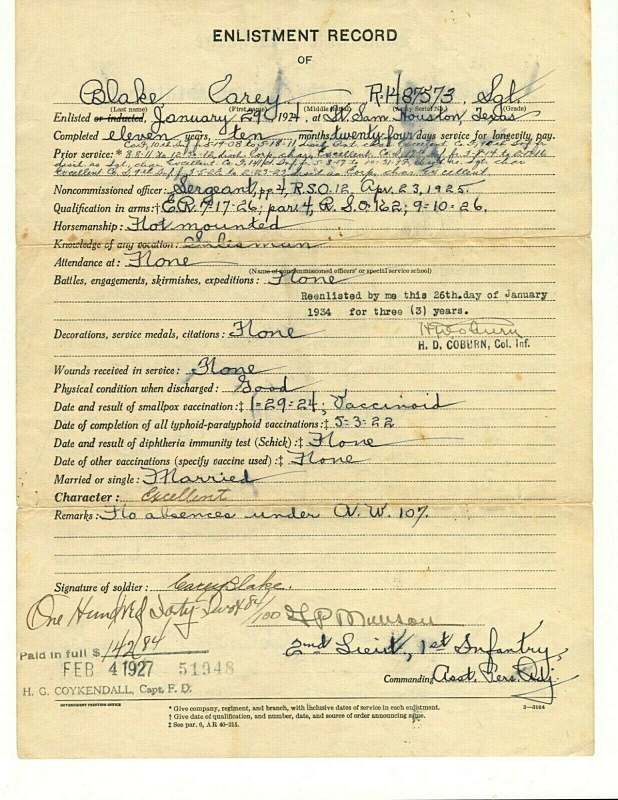 ENLISTMENT RECORD
OF
Blake Carey. R-1487573, Sgt.
(Last name) (First name) (Middle initial) (Army Serial No.) (Grade)
Enlisted or inducted, January 29 1924, at Ft. Sam Houston, Texas
Completed eleven years, ten months twenty four days service for longevity pay.
Prior service:*
Excellent
Noncommissioned officer: Sergeant, R.S.O. 12, Apr. 23, 1925.
Qualification in arms:† E.R. 9-17-26; par. 4, R.S.O. 162; 9-10-26.
Horsemanship: Not mounted
Knowledge of any vocation:
Attendance at: None
(Name of noncommissioned officers' or special service school)
Battles, engagements, skirmishes, expeditions: None
Reenlisted by me this 26th.day of January
1934 for three (3) years.
Decorations, service medals, citations: None
H D Coburn
H. D. COBURN, Col. Inf.
Wounds received in service: None
Physical condition when discharged: Good
Date and result of smallpox vaccination:‡ 1-29-24; Vaccinoid
Date of completion of all typhoid-paratyphoid vaccinations:‡ 5-3-22
Date and result of diphtheria immunity test (Schick):‡ None
Date of other vaccinations (specify vaccine used):‡ None
Married or single: Married
Character: Excellent
Remarks: No absences under A. W. 107.
Signature of soldier: Carey Blake.
One Hundred 84/100
2nd Lieut, 1st Infantry,
Paid in full $ 142 84
FEB 4 1927 51948
Commanding Asst. Pers. Adj.
H. G. COYKENDALL, Capt. F. D.
GOVERNMENT PRINTING OFFICE
* Give company, regiment, and branch, with inclusive dates of service in each enlistment.
3—3164
† Give date of qualification, and number, date, and source of order announcing same.
‡ See par. 6, AR 40-215.